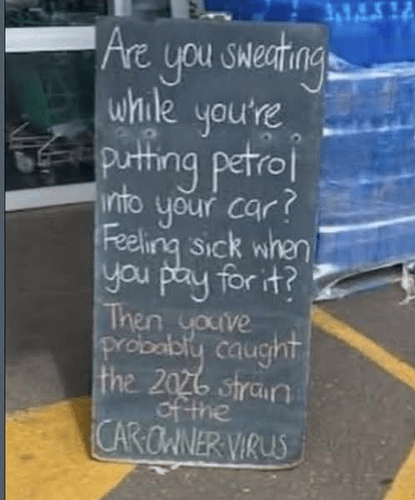 Are you sweating
while you're
putting petrol
into your car?
Feeling sick when
you pay for it?
Then you've
probably caught
the 2026 strain
of the
CAR-OWNER-VIRUS